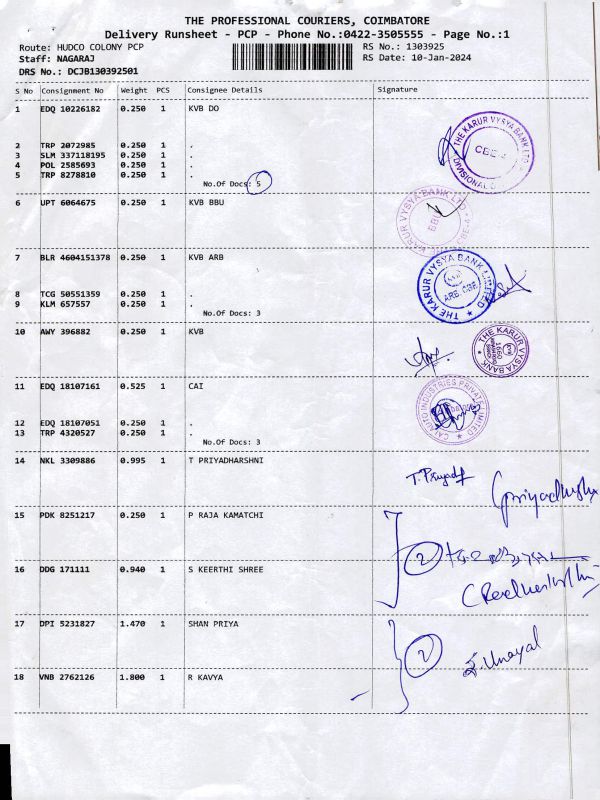 THE PROFESSIONAL COURIERS, COIMBATORE
Delivery Runsheet - PCP - Phone No.:0422-3505555 - Page No.:1
Route: HUDCO COLONY PCP RS No.: 1303925
Staff: NAGARAJ RS Date: 10-Jan-2024
DRS No.: DCJB130392501
S No Consignment No Weight PCS Consignee Details Signature
1 EDQ 10226182 0.250 1 KVB DO
2 TRP 2072985 0.250 1 .
3 SLM 337118195 0.250 1 .
4 POL 2585693 0.250 1 .
5 TRP 8278810 0.250 1 .
No.Of Docs: 5
THE KARUR VYSYA BANK LTD. DIVISIONAL
6 UPT 6064675 0.250 1 KVB BBU
KARUR VYSYA BANK LTD
7 BLR 4604151378 0.250 1 KVB ARB
THE KARUR VYSYA BANK LIMITED ARB, CBE
8 TCG 50551359 0.250 1 .
9 KLM 657557 0.250 1 .
No.Of Docs: 3
10 AWY 396882 0.250 1 KVB
THE KARUR VYSYA BANK 1660
11 EDQ 18107161 0.525 1 CAI
12 EDQ 18107051 0.250 1 .
13 TRP 4320527 0.250 1 .
No.Of Docs: 3
CAI AUTO INDUSTRIES PRIVATE LIMITED
14 NKL 3309886 0.995 1 T PRIYADHARSHNI
15 PDK 8251217 0.250 1 P RAJA KAMATCHI
2
16 DDG 171111 0.940 1 S KEERTHI SHREE
17 DPI 5231827 1.470 1 SHAN PRIYA
2
18 VNB 2762126 1.800 1 R KAVYA